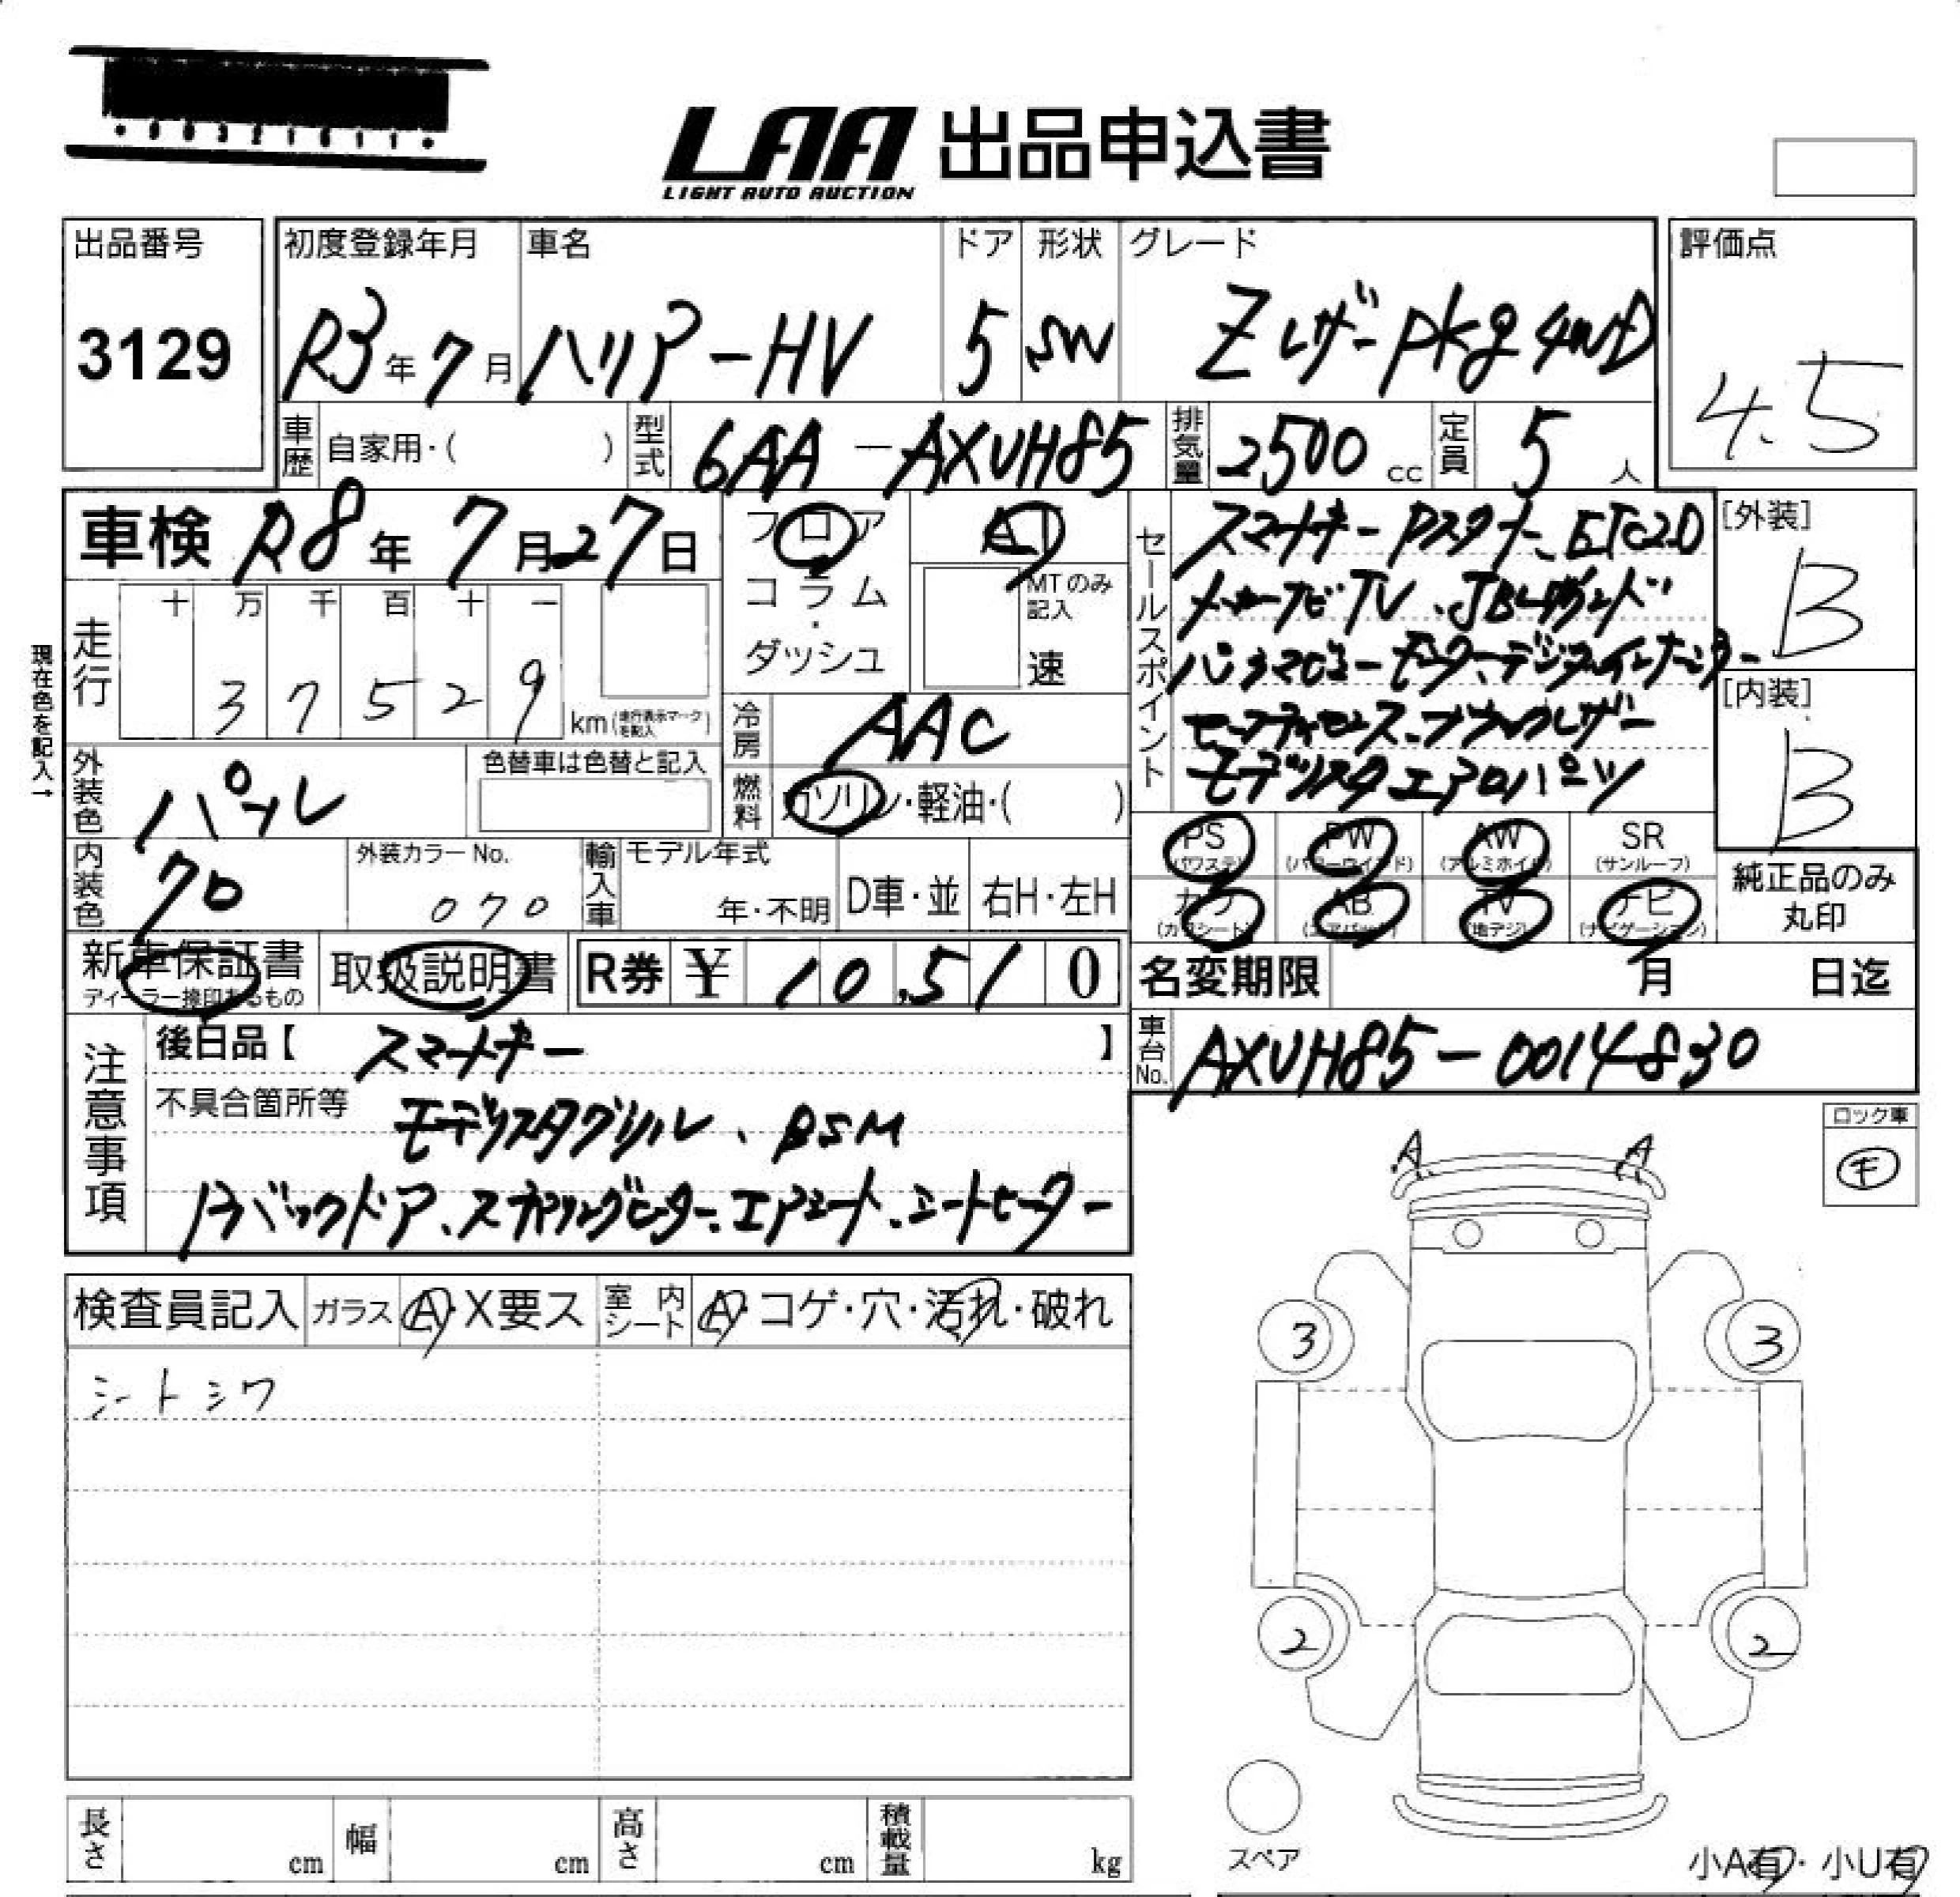 LAA 出品申込書
LIGHT AUTO AUCTION
出品番号
3129
初度登録年月
R3年7月
車名
ハリアーHV
ドア
5
形状
SW
グレード
Zレザーpkg 4WD
評価点
4.5
車歴
自家用・( )
型式
6AA-AXUH85
排気量
2500 cc
定員
5人
車検 R8年7月27日
フロア
コラム
・
ダッシュ
AT
MTのみ記入
速
セールスポイント
スマートキー Dスタート、ETC2.0
メーカーナビTV、JBLサウンド
パノラマビューモニター、デジタルインナーミラー
セーフティセンス、ブラックレザー
モデリスタエアロパーツ
[外装]
B
[内装]
B
現在色を記入→
走行
十 万 千 百 十 一
3 7 5 2 9 km (走行表示マークを記入)
冷房
AAC
外装色
パール
色替車は色替と記入
燃料
ガソリン・軽油・( )
内装色
クロ
外装カラーNo.
070
輸入車
モデル年式
年・不明
D車・並
右H・左H
PS (パワステ)
PW (パワーウインド)
AW (アルミホイル)
SR (サンルーフ)
カワ (カワシート)
AB (エアバック)
TV (地デジ)
ナビ (ナビゲーション)
純正品のみ
丸印
新車保証書
ディーラー捺印あるもの
取扱説明書
R券 ¥ 10,510
名変期限 月 日迄
注意事項
後日品【 スマートキー 】
不具合箇所等
モデリスタグリル、BSM
Pバックドア、ステアリングヒーター、エアシート、シートヒーター
車台No.
AXUH85-0014830
ロック車
キ
検査員記入
ガラス
A・X要ス
室内シート
A・コゲ・穴・汚れ・破れ
シートシワ
A A
3 3
2 2
スペア
小A有・小U有
長さ cm
幅 cm
高さ cm
積載量 kg